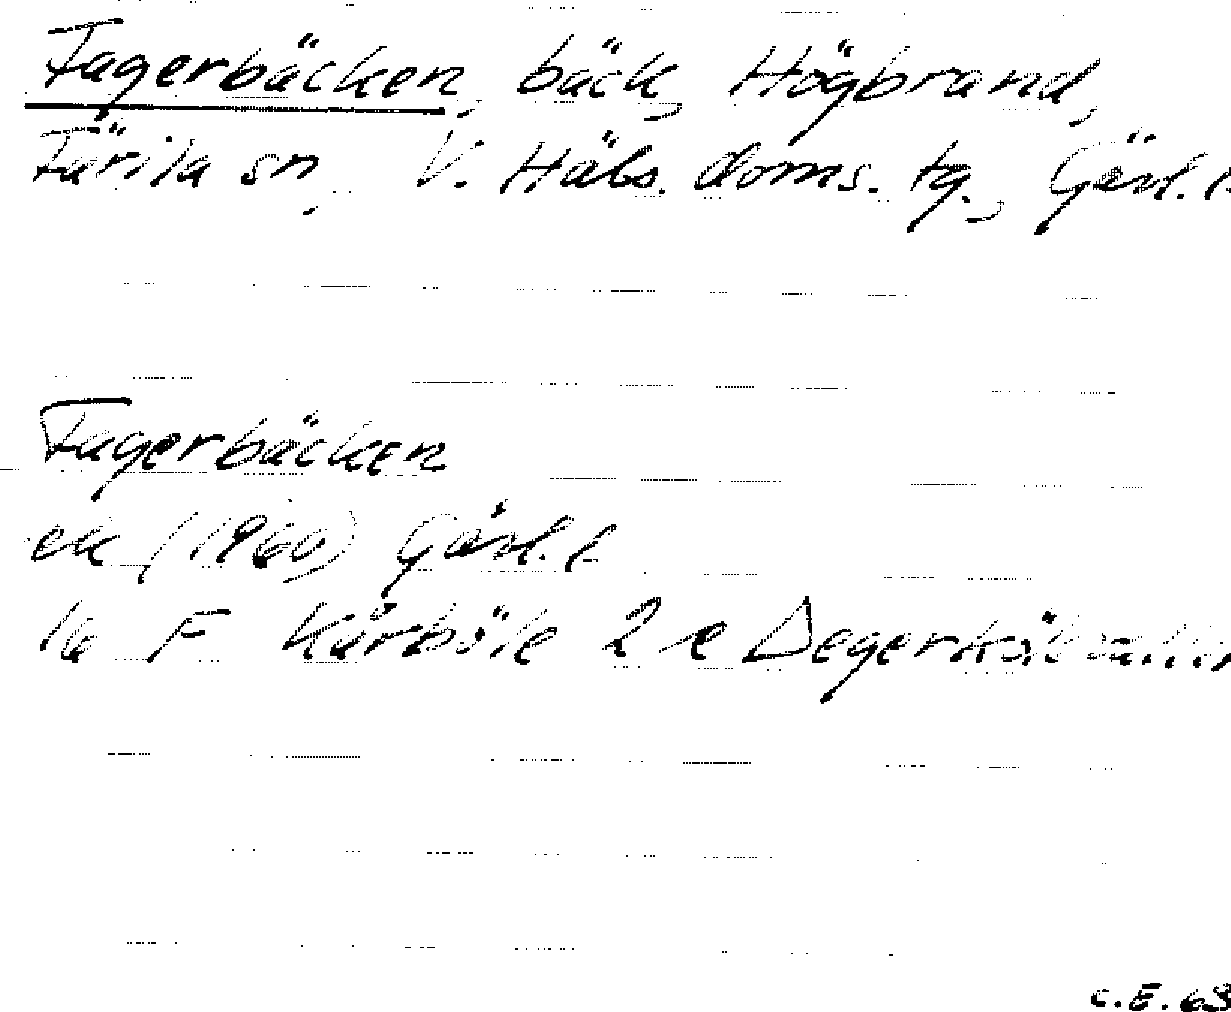 Fagerbäcken, bäck, Högbrand,
Färila sn, V. Häls. doms. tg., Gävl. l.
Fagerbäcken
ek (1960) Gävl. l.
16 F Kårböle 2 e
C.E. 63